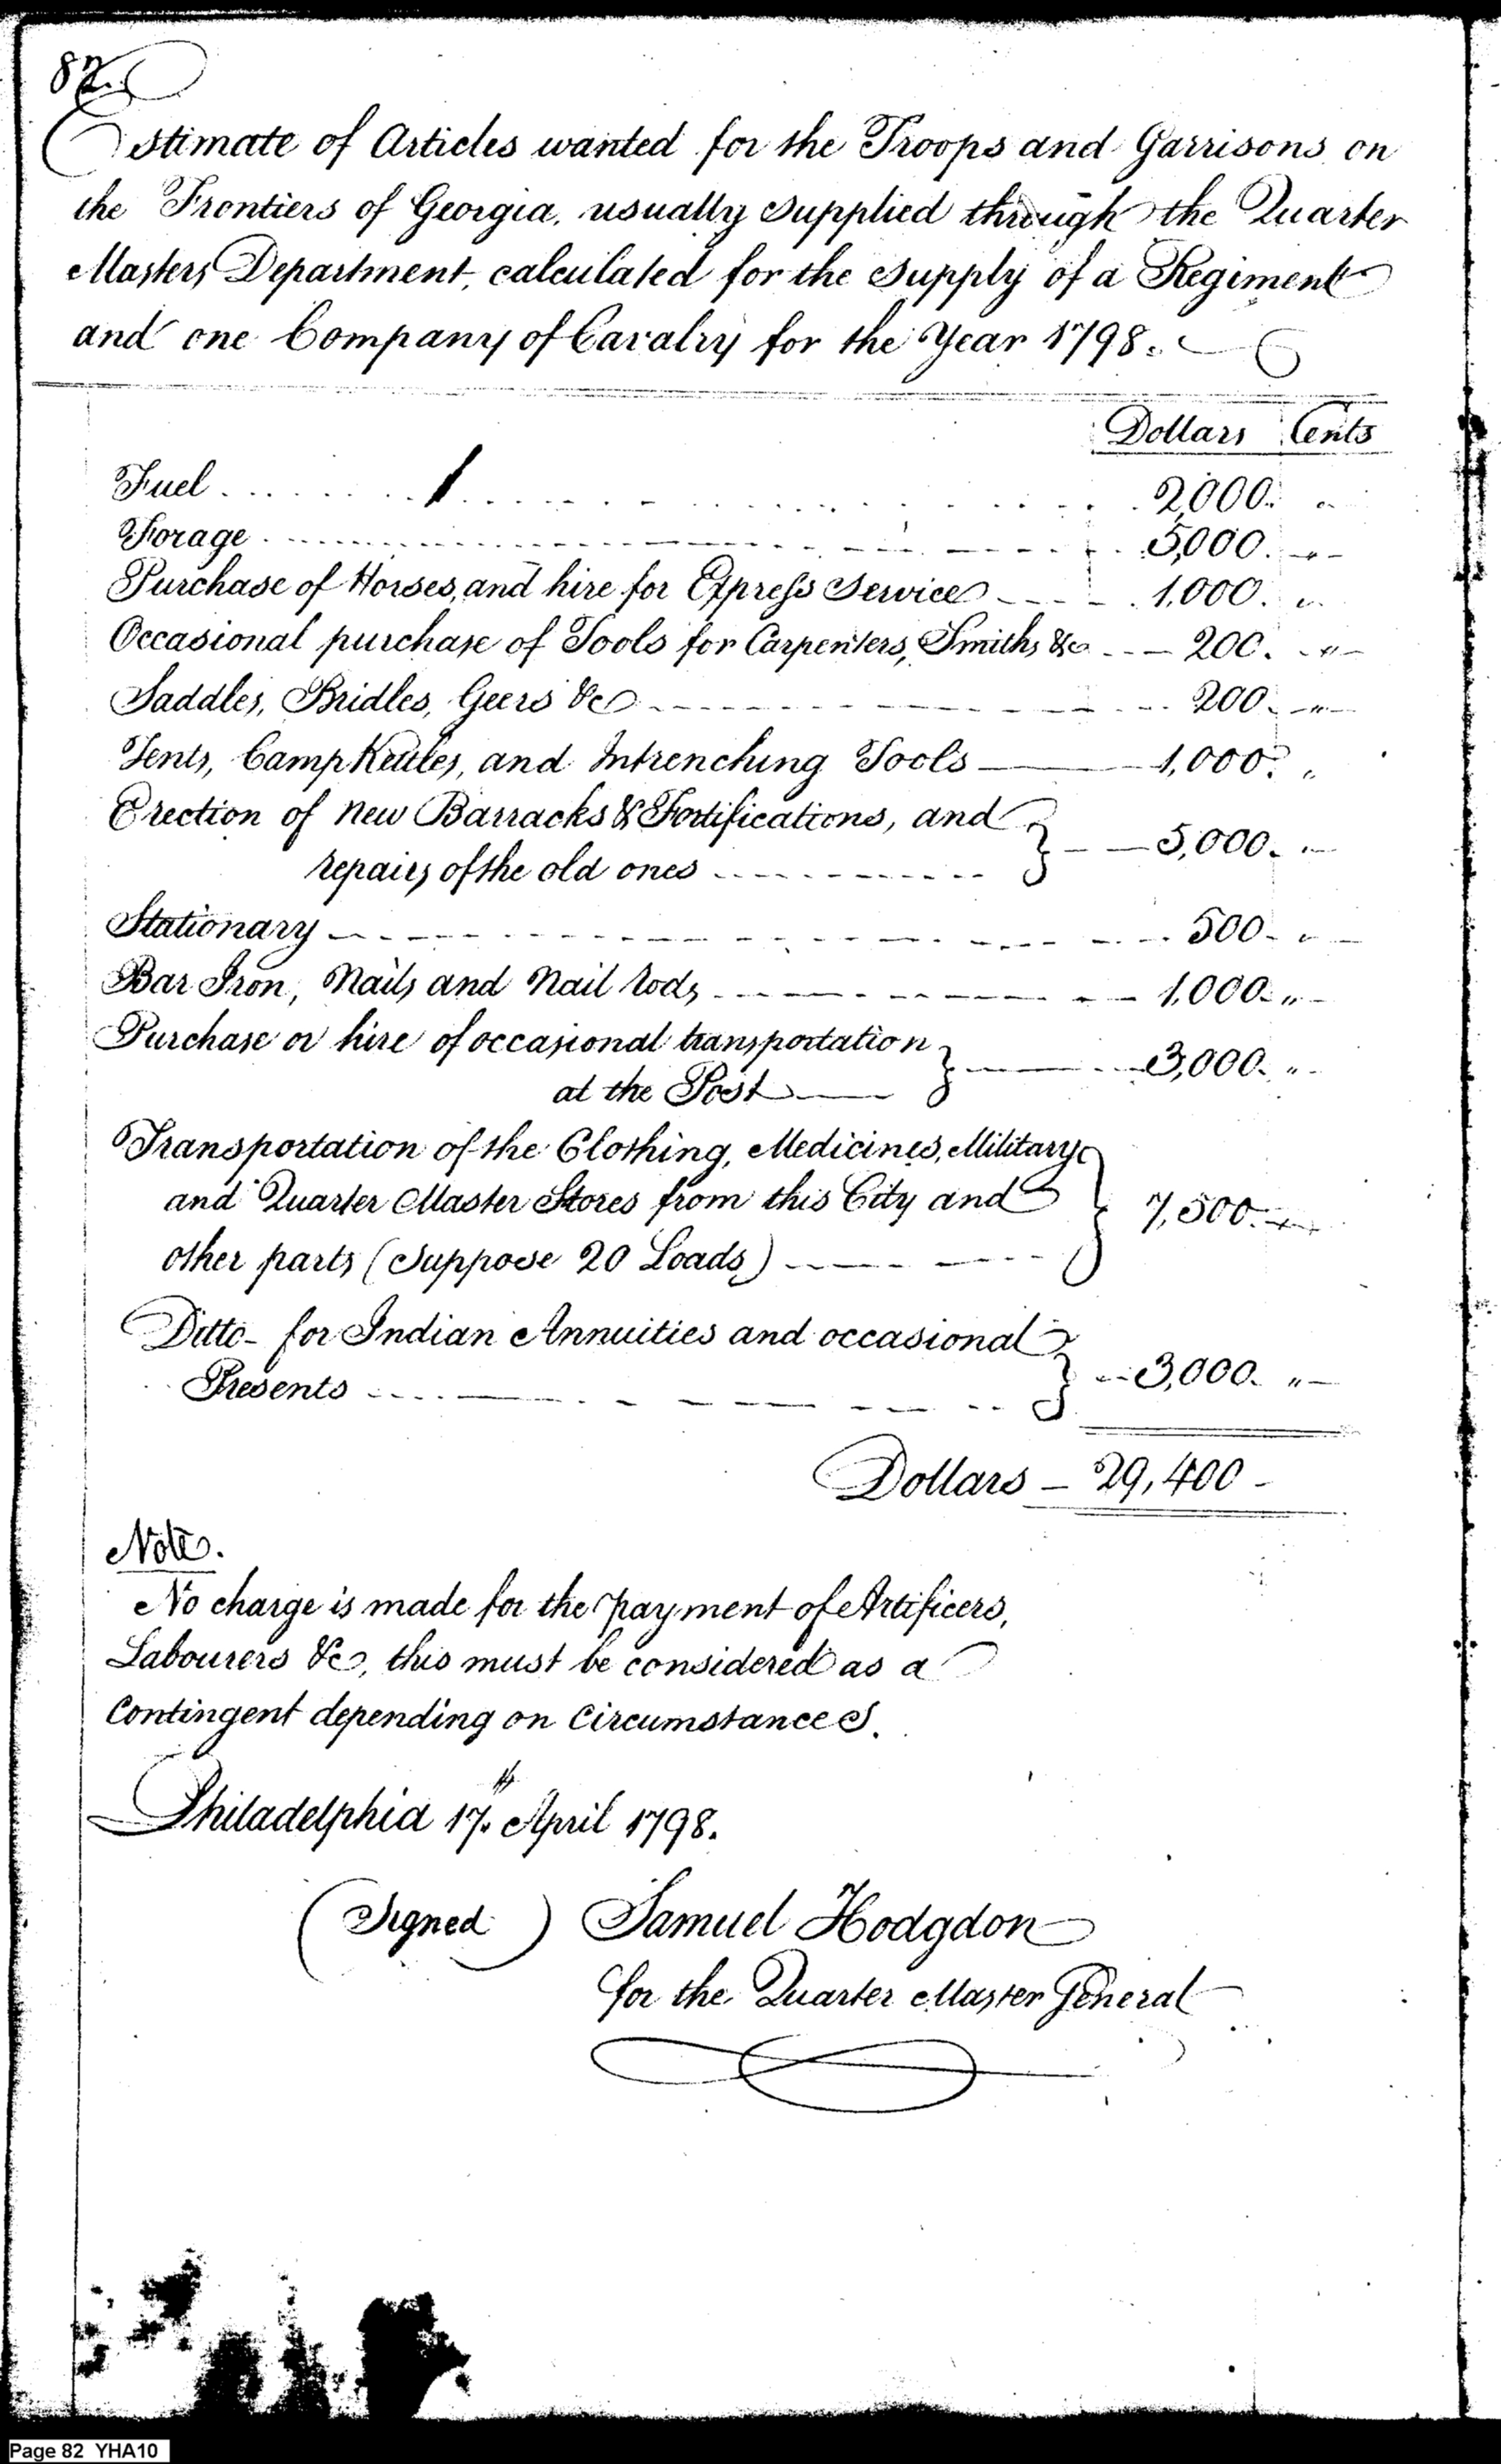 82.
Estimate of Articles wanted for the Troops and Garrisons on
the Frontiers of Georgia, usually supplied through the Quarter
Masters Department, calculated for the supply of a Regiment
and one Company of Cavalry for the Year 1798.
Dollars Cents
Fuel 2,000. "
Forage 5,000. "
Purchase of Horses, and hire for Express Service 1,000. "
Occasional purchase of Tools for Carpenters, Smiths &c 200. "
Saddles, Bridles, Geers &c 200. "
Tents, Camp Kettles, and Intrenching Tools 1,000. "
Erection of new Barracks & Fortifications, and
repairs of the old ones 5,000. "
Stationary 500. "
Bar Iron, Nails and Nail rods 1,000. "
Purchase or hire of occasional transportation
at the Post 3,000. "
Transportation of the Clothing, Medicines, Military
and Quarter Master Stores from this City and 7,500. "
other parts (Suppose 20 Loads)
Ditto - for Indian Annuities and occasional
Presents 3,000. "
Dollars - 29,400 -
Note.
No charge is made for the payment of Artificers,
Labourers &c, this must be considered as a
Contingent depending on Circumstances.
Philadelphia 17th April 1798.
(Signed) Samuel Hodgdon
for the Quarter Master General
Page 82 YHA10